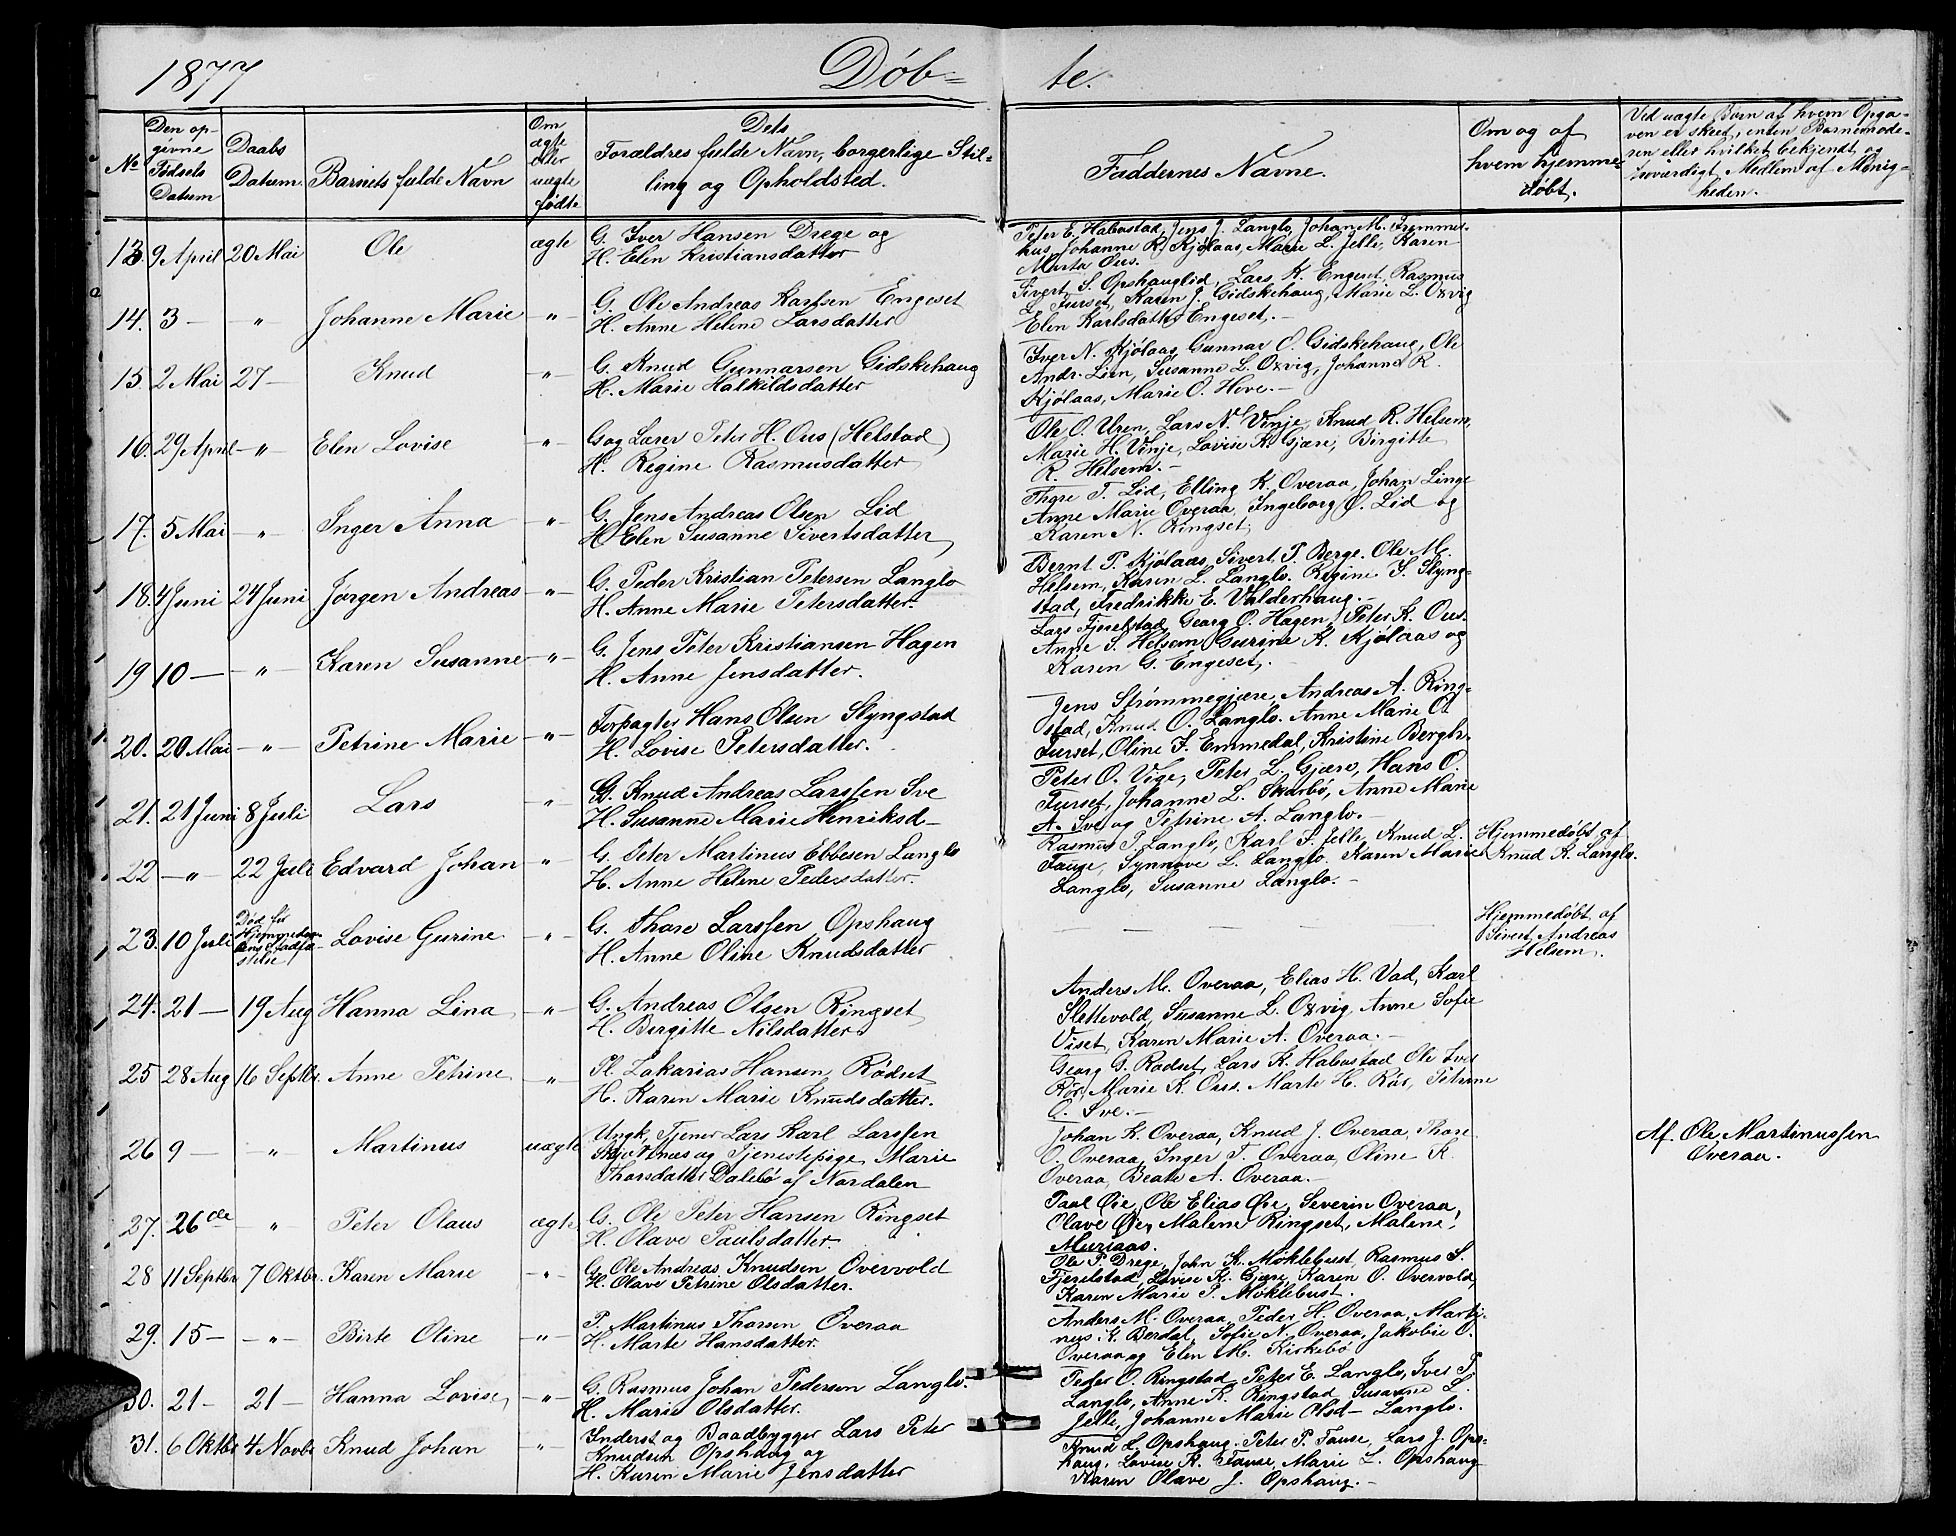 1877 Døb-te.
No
Den op-
givne
Fødsels
Datum
Daabs
Datum.
Barnets fulde Navn
Om
ægte
eller
uægte
fødte
Dets
Forældres fulde Navn, borgerlige Stil-
ling og Opholdsted.
Faddernes Navne.
Om og af
hvem hjemme-
døbt.
Ved uægte Børn af hvem Opga-
ven er skeed, enten Barnemode-
ren eller hvilket bekjendt og
troværdigt Medlem af Menig-
heden.
13. 9 April 20 Mai Ole ægte
G. Iver Hansen Drege og
H. Elen Kristiansdatter
Peter E. Habostad, Jens J. Langlo, Johan M. Fremmer-
hus, Johanne R. Kjölaas, Marie L. Jelle, Karen
Marta Ous.
14. 3 — " Johanne Marie -"-
G. Ole Andreas Karlsen Engeset
H. Anne Helene Larsdatter
Sivert S. Opshauglid, Lars K. Engeset, Rasmus
L. Furset, Karen J. Gidskehaug, Marie L. Oxvig
Elen Karlsdatter Engeset.-
15. 2 Mai 27 — Knud -"-
G. Knud Gunnarsen Gidskehaug
H. Marie Halkildsdatter
Iver N. Kjölaas, Gunnar O. Gidskehaug, Ole
Andr. Lien, Susanne L. Oxvig, Johanne R.
Kjölaas, Marie O. Hove.-
16. 29 April -"- Elen Lovise -"-
G og Lærer Peter H. Ous (Helstad)
H. Regine Rasmusdatter
Ole O. Uren, Lars N. Vinje, Knud R. Helsem,
Marie H. Vinje, Lovise K. Gjære, Birgitte
R. Helsem.-
17. 5 Mai -"- Inger Anna -"-
G. Jens Andreas Olsen Lid
H. Elen Susanne Sivertsdatter
Thore T. Lid, Elling K. Overaa, Johan Linge
Anne Marie Overaa, Ingeborg O. Lid og
Karen N. Ringset.
18. 4 Juni 24 Juni Jørgen Andreas -"-
G. Peder Kristian Petersen Langlo
H. Anne Marie Petersdatter.
Bernt P. Kjölaas, Sivert P. Berge. Ole M.
Helsem, Karen L. Langlo. Regine I. Slyng-
stad, Fredrikke E. Valderhaug.-
19 10 — -"- Karen Susanne -"-
G. Jens Peter Kristiansen Hagen
H. Anne Jensdatter.
Lars Fjerelstad, Georg O. Hagen, Peter K. Ous.
Anne S. Helsem, Gurine K. Kjölaas og
Karen G. Engeset.
20. 20 Mai -"- Petrine Marie -"-
Forpagter Hans Olsen Slyngstad
H. Lovise Petersdatter.
Jens Strømmegjære, Andreas A. Ring-
stad, Knud O. Langlo. Anne Marie O
Furset, Oline I. Emmedal, Kristine Bergtr.
21. 21 Juni 8 Juli Lars -"-
G. Knud Andreas Larssen Sve
H. Susanne Marie Henriksd-
Peter O. Vige, Peter L. Gjære, Hans O.
Furset, Johanne L. Skarbö, Anne Marie
A. Sve og Petrine A. Langlo.-
22 -"- 22 Juli Edvard Johan "
G. Peter Martinus Ebbesen Langlo
H. Anne Helene Pedersdatter.
Rasmus P. Langlo, Karl S. Jelle, Knud L.
Tause, Synnøve L. Langlo, Karen Marie
Langlo, Susanne Langlo.-
Hjemmedøbt af
Knud K. Langlo.
23. 10 Juli
Død før
Lovise Gurine -"-
G. Thore Larssen Opshaug
H. Anne Oline Knudsdatter
Hjemmedøbt af
Sivert Andreas
Helsem.
24. 21 — 19 Aug Hanna Lina -"-
G. Andreas Olsen Ringset
H. Birgitte Nilsdatter
Anders M. Overaa, Elias H. Vad, Karl
Slettevold, Susanne L. Oxvig, Anne Sofie
Viset, Karen Marie A. Overaa.-
25 28 Aug 16 Septbr. Anne Petrine -"-
Pl. Zakarias Hansen Rödset
H. Karen Marie Knudsdatter.
Georg G. Rødset, Lars K. Habostad Ole Iver
Rör, Marie K. Ous. Marte H. Rör, Petrine
O. Sve.-
26 9 — " Martinus uægte
Ungk. Tjener Lars Karl Larssen
og Tjenestepige Marie
Thorsdatter Dalebö af Nordalen
Johan K. Overaa, Knud J. Overaa, Thore
O. Overaa, Inger T. Overaa, Oline K.
Overaa, Beate A. Overaa.-
Af. Ole Martinussen
Overaa.
27. 26de " Peter Olaus ægte
G. Ole Peter Hansen Ringset
H. Olave Paulsdatter.
Paul Øie, Ole Elias Øie, Severin Overaa,
Olave Øie, Malene Ringset, Malene,
Muriaas.
28 11 Septbr 7 Oktbr. Karen Marie -"-
G. Ole Andreas Knudsen Overvold
H. Olave Petrine Olsdatter.
Ole P. Drege, John K. Möklebust, Rasmus S.
Fjerelstad, Lovise K. Gjære, Karen O. Overvold,
Karen Marie P. Möklebust.
29. 15 — -"- Birte Oline -"-
P. Martinus Thorsen Overaa
H. Marte Hansdatter.
Anders M. Overaa, Peder H. Overaa, Marti-
nus K. Berdal, Sofie N. Overaa, Jakobie O.
Overaa og Elen M. Kirkebö
30. 21 — 21 — Hanna Lovise -"-
G. Rasmus Johan Pedersen Langlo.
H. Marie Olsdatter.
Peder O. Ringstad, Peter E. Langlo, Iver P
Langlo, Anne K. Ringstad, Susanne L.
Jelle, Johanne Marie Olsd- Langlo.
31. 6 Oktbr 4 Novbr Knud Johan -"-
Inderst og Baadbygger Lars Peter
Knudsen Opshaug og
H. Karen Marie Jensdatter
Knud L. Opshaug. Peter P. Tause, Lars J. Ops-
haug, Lovise K. Tause, Marie L. Opshaug
Karen Olave J. Opshaug.-